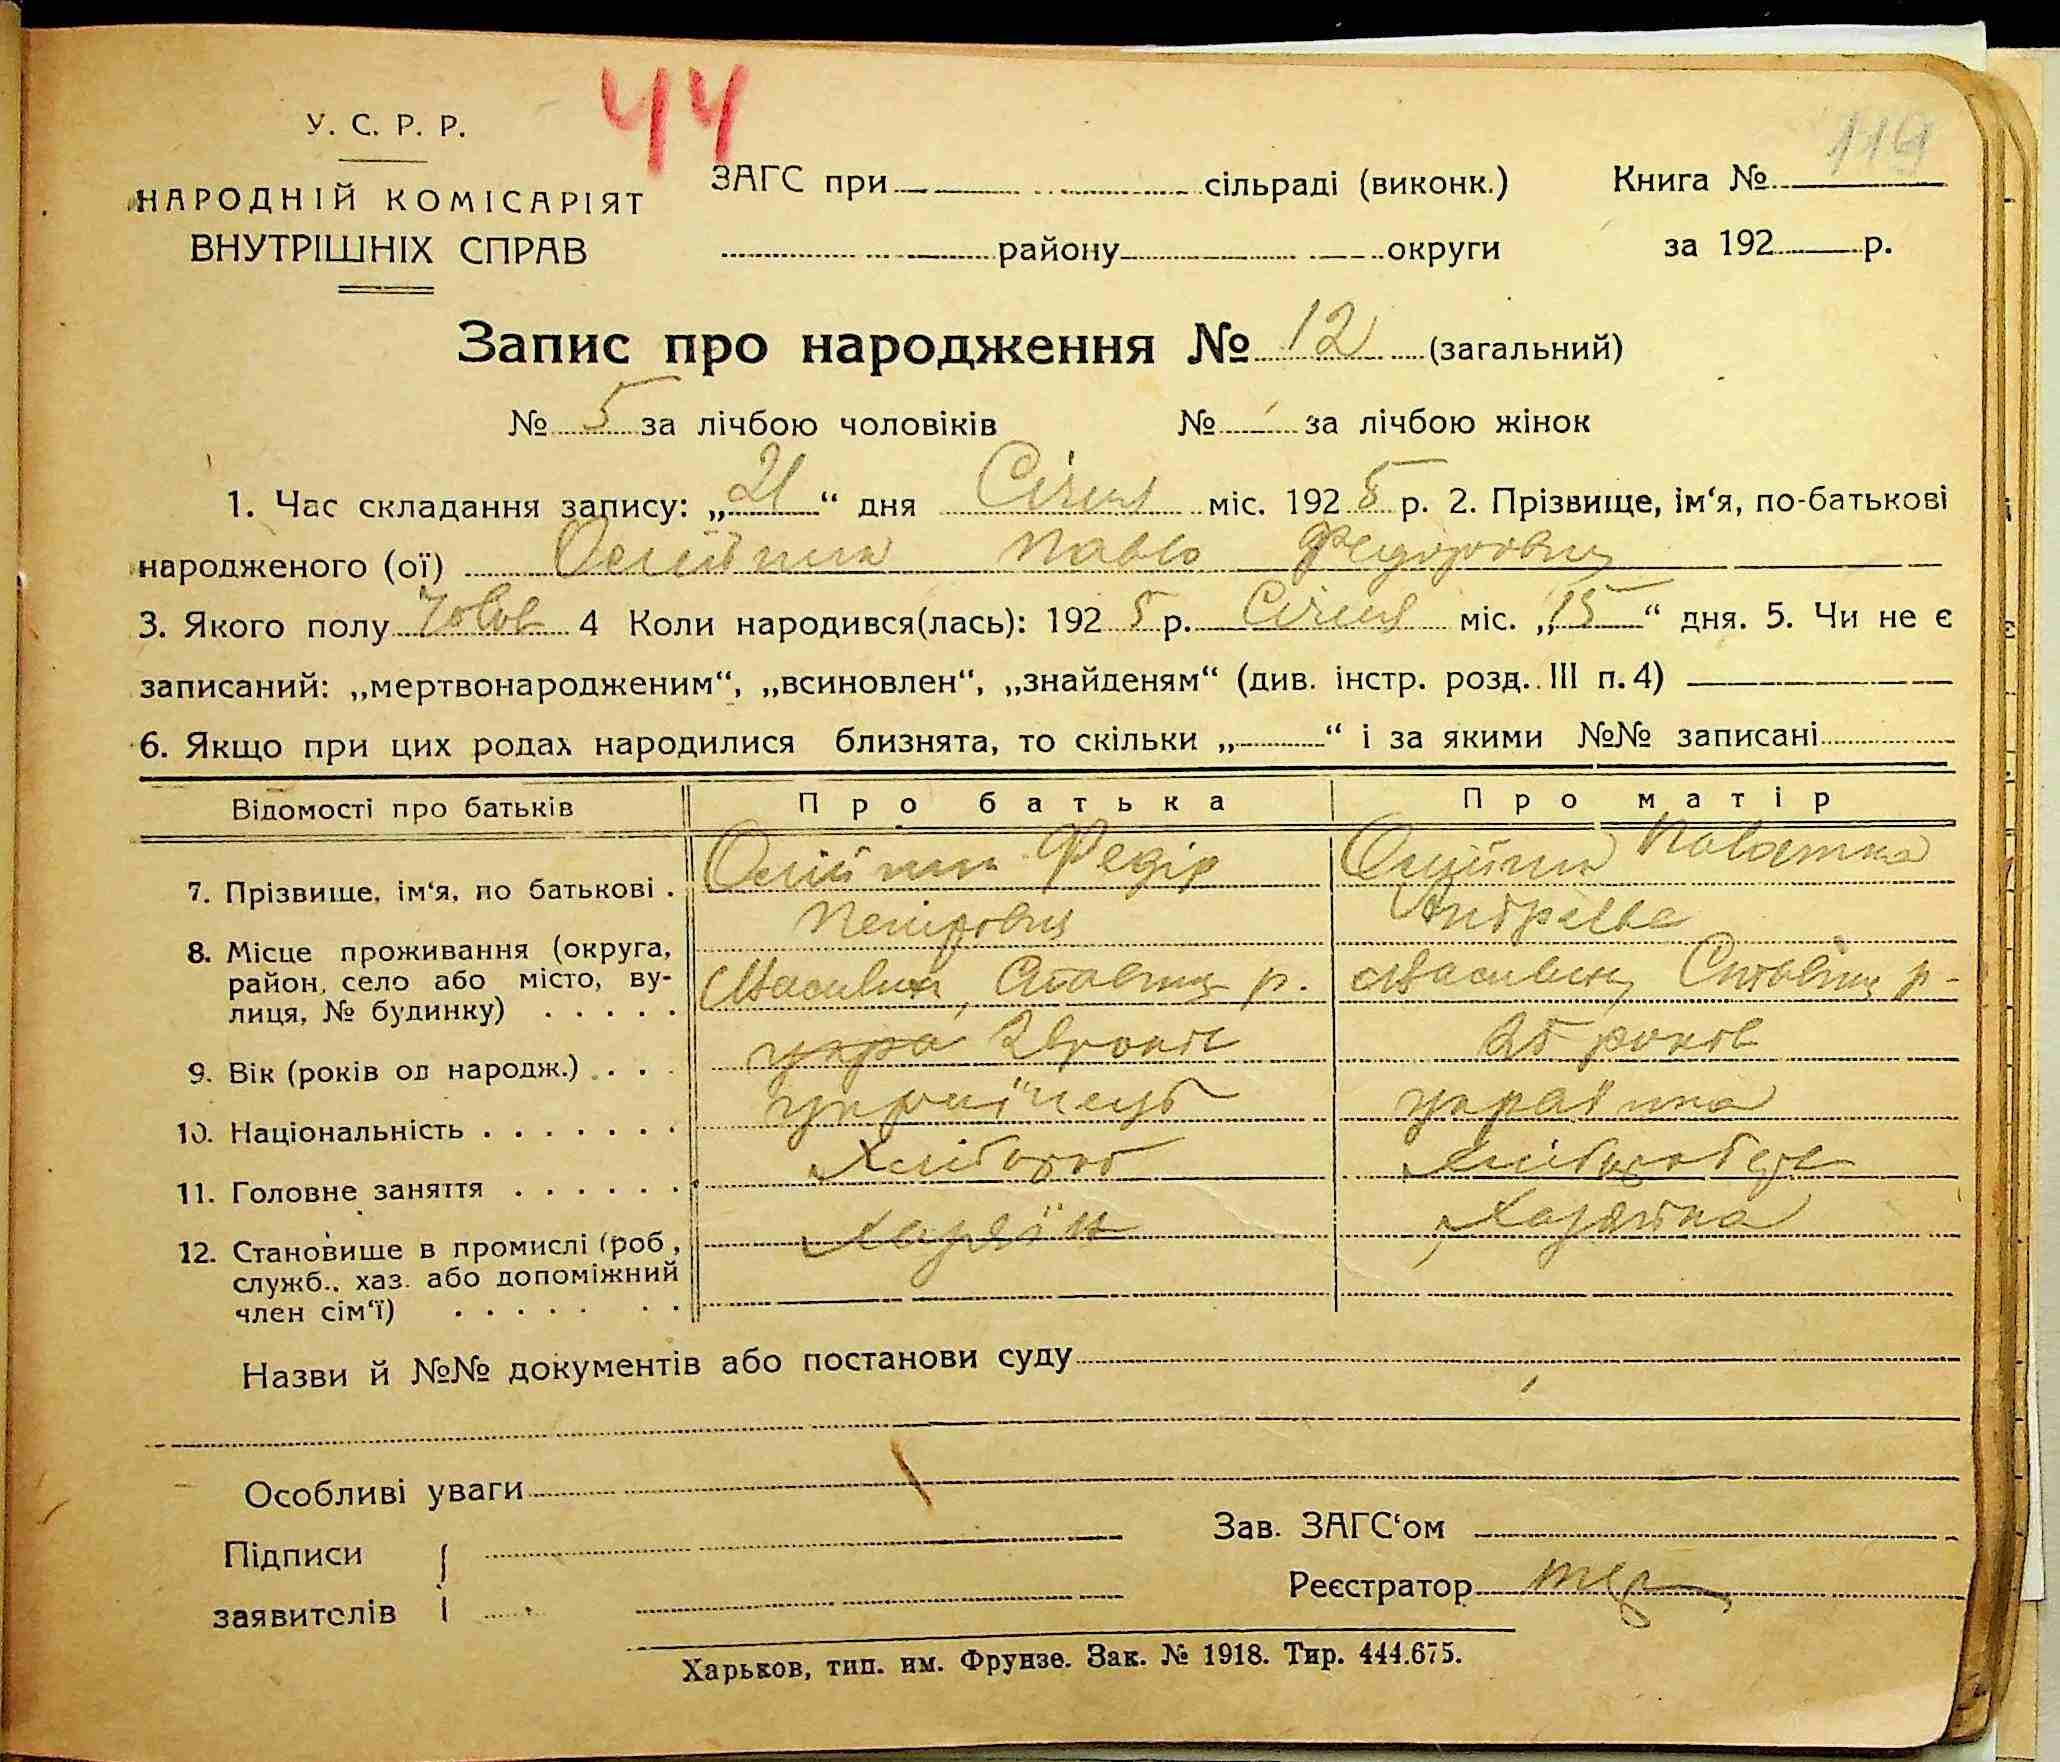 44
119
У. С. Р. Р.
НАРОДНІЙ КОМІСАРІЯТ
ВНУТРІШНІХ СПРАВ
ЗАГС при сільраді (виконк.) Книга №
району округи за 192 р.
Запис про народження № 12 (загальний)
№ 5 за лічбою чоловіків № за лічбою жінок
1. Час складання запису: „21“ дня Січня міс. 1925 р. 2. Прізвище, ім‘я, по-батькові
народженого (ої) Олійник Павло Федорович
3. Якого полу Чолов 4 Коли народився(лась): 1925 р. Січня міс. „15“ дня. 5. Чи не є
записаний: „мертвонародженим“, „всиновлен“, „знайденям“ (див. інстр. розд. III п. 4)
6. Якщо при цих родах народилися близнята, то скільки „ “ і за якими №№ записані
Відомості про батьків Про батька Про матір
7. Прізвище, ім‘я, по батькові . Олійник Федір Олійник
Петрович Андреєва
8. Місце проживання (округа,
район, село або місто, ву-
лиця, № будинку) . . . . . р. р.
9. Вік (років од народж.) . . . років 25 років
10. Національність . . . . . . . українець українка
11. Головне заняття . . . . . . Хлібороб
12. Становище в промислі (роб,
служб., хаз. або допоміжний
член сім‘ї) . . . . . . . Хазяїн Хазяйка
Назви й №№ документів або постанови суду
Особливі уваги
Підписи
заявителів
Зав. ЗАГС‘ом
Реєстратор
Харьков, тип. им. Фрунзе. Зак. № 1918. Тир. 444.675.